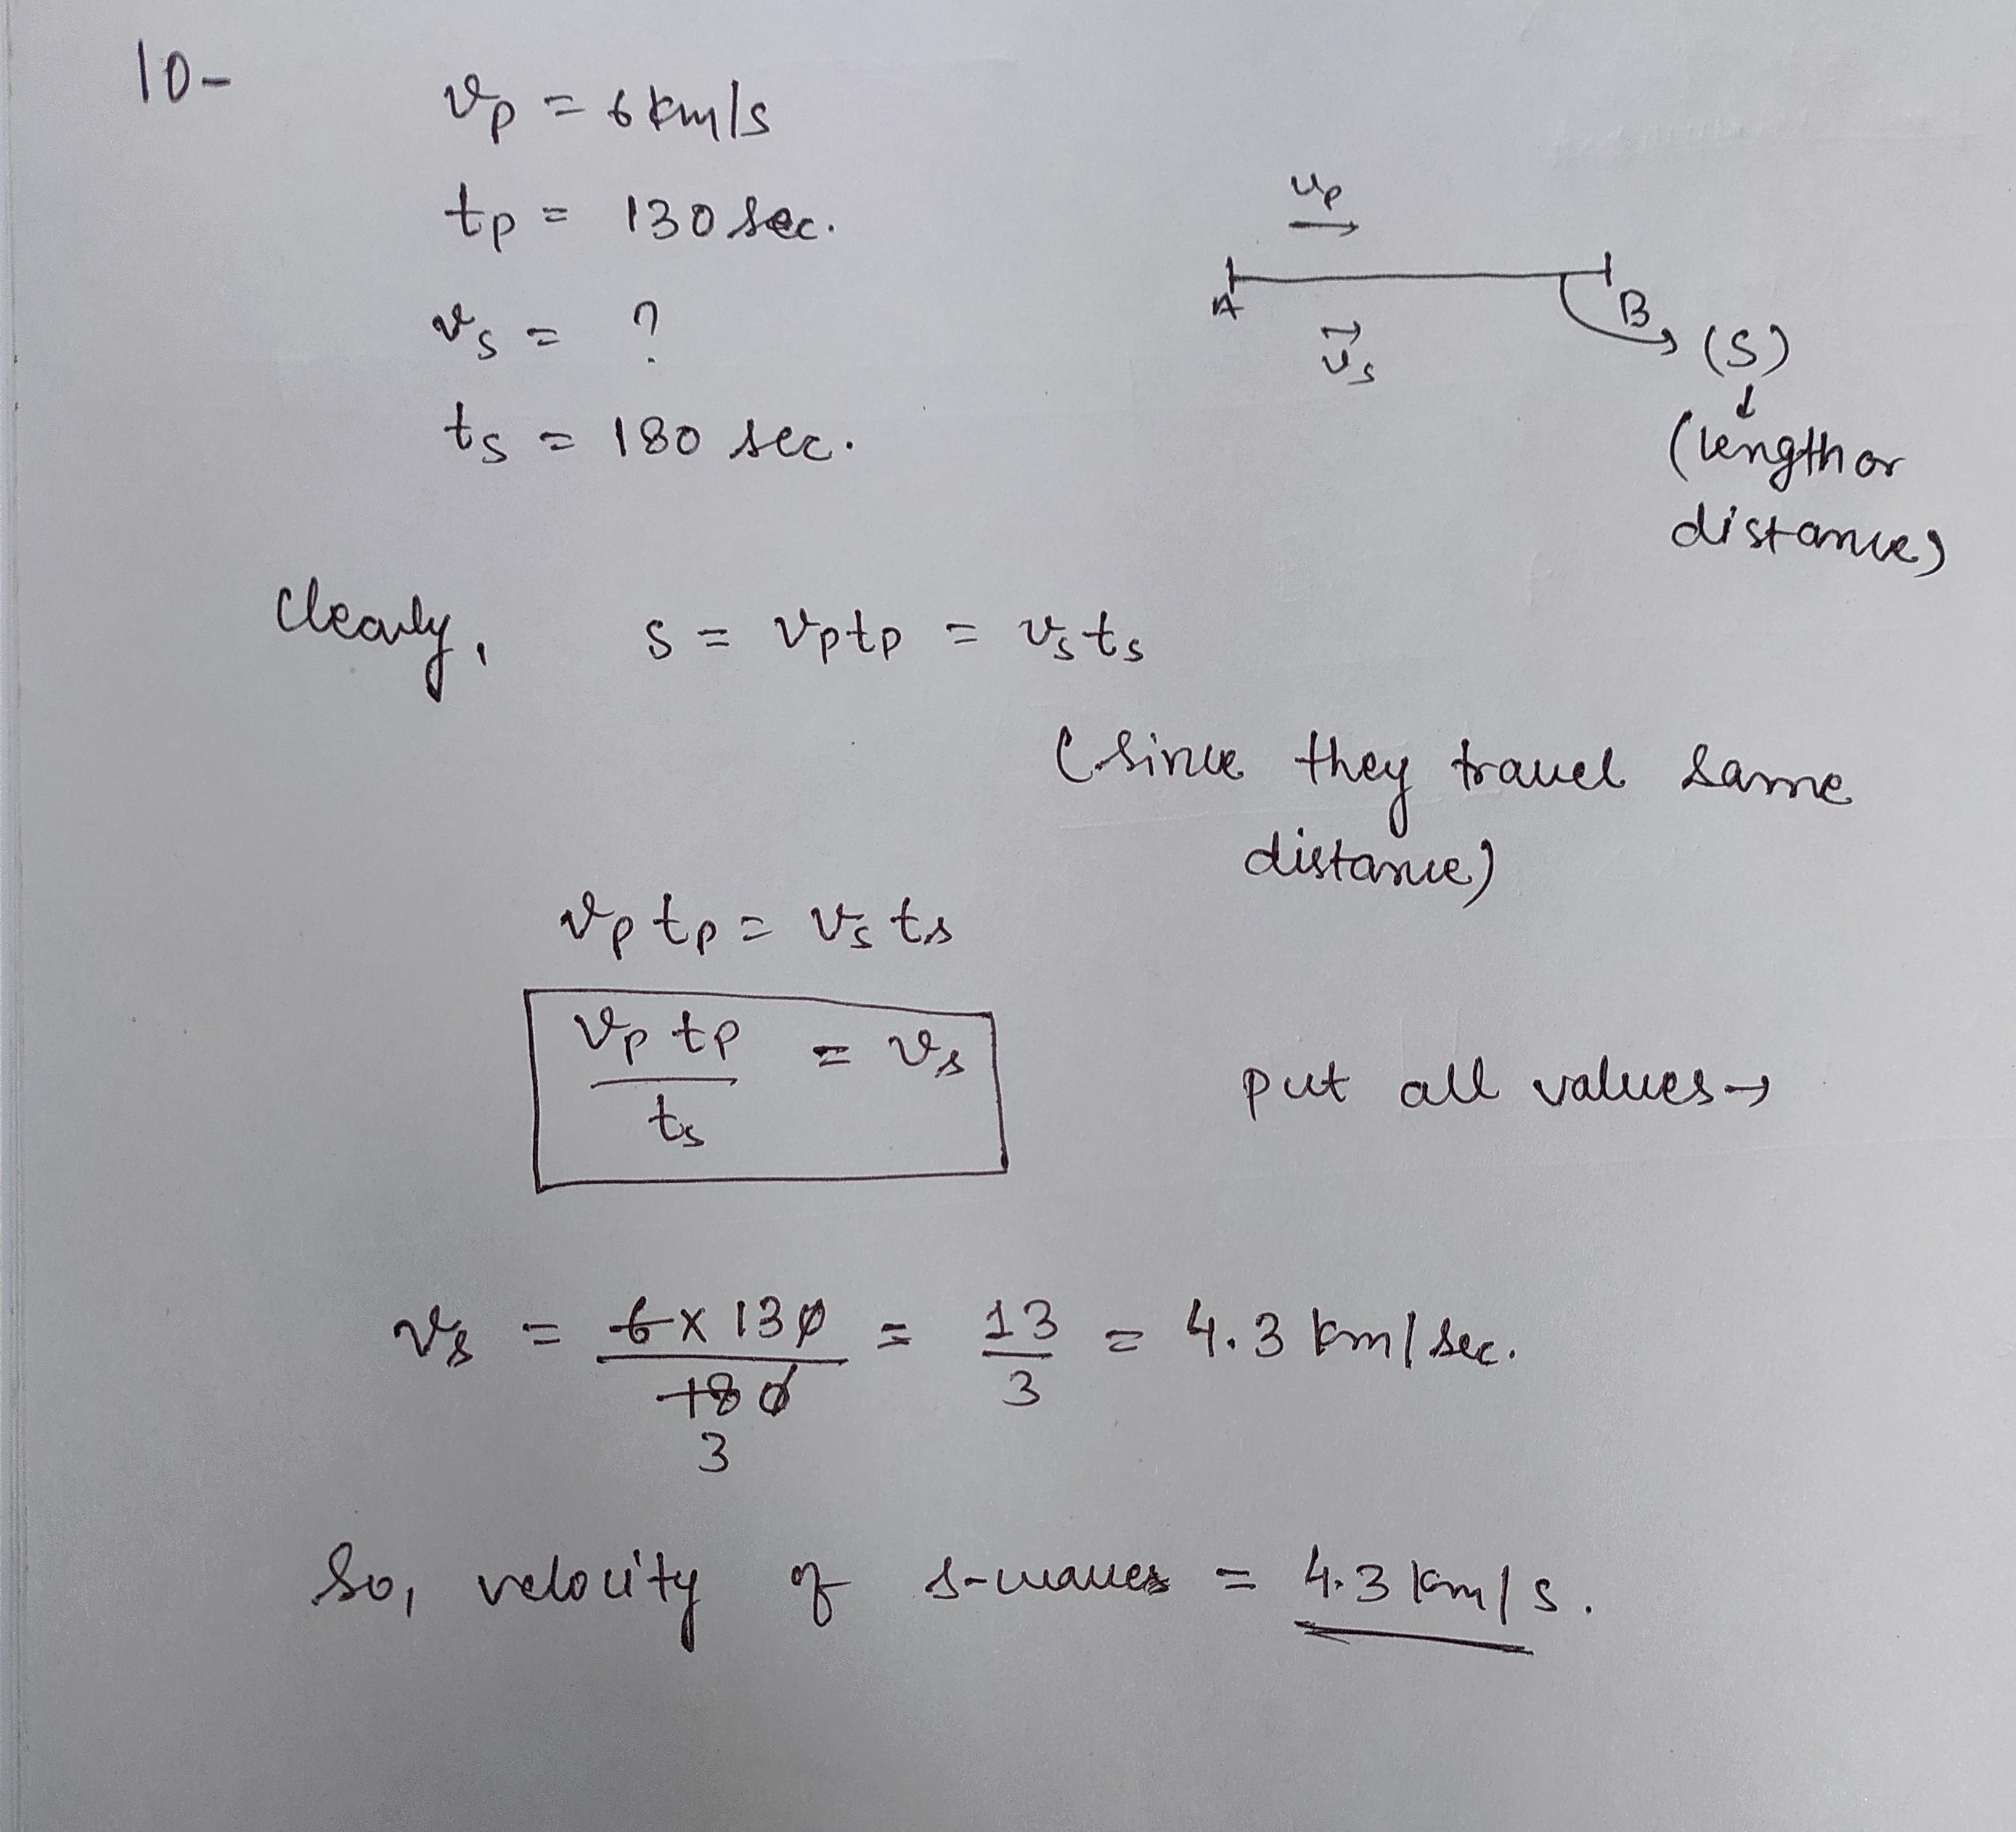 10-
vp = 6 km/s
tp = 130 sec.
vs = ?
ts = 180 sec.
vp
A B
vs
(S)
(length or
distance)
Clearly, s = vptp = vsts
(since they travel same
distance)
vp tp = vs ts
vp tp / ts = vs
put all values →
vs = 6 x 130 / 180 = 13 / 3 = 4.3 km/sec.
3
So, velocity of s-waves = 4.3 km/s.